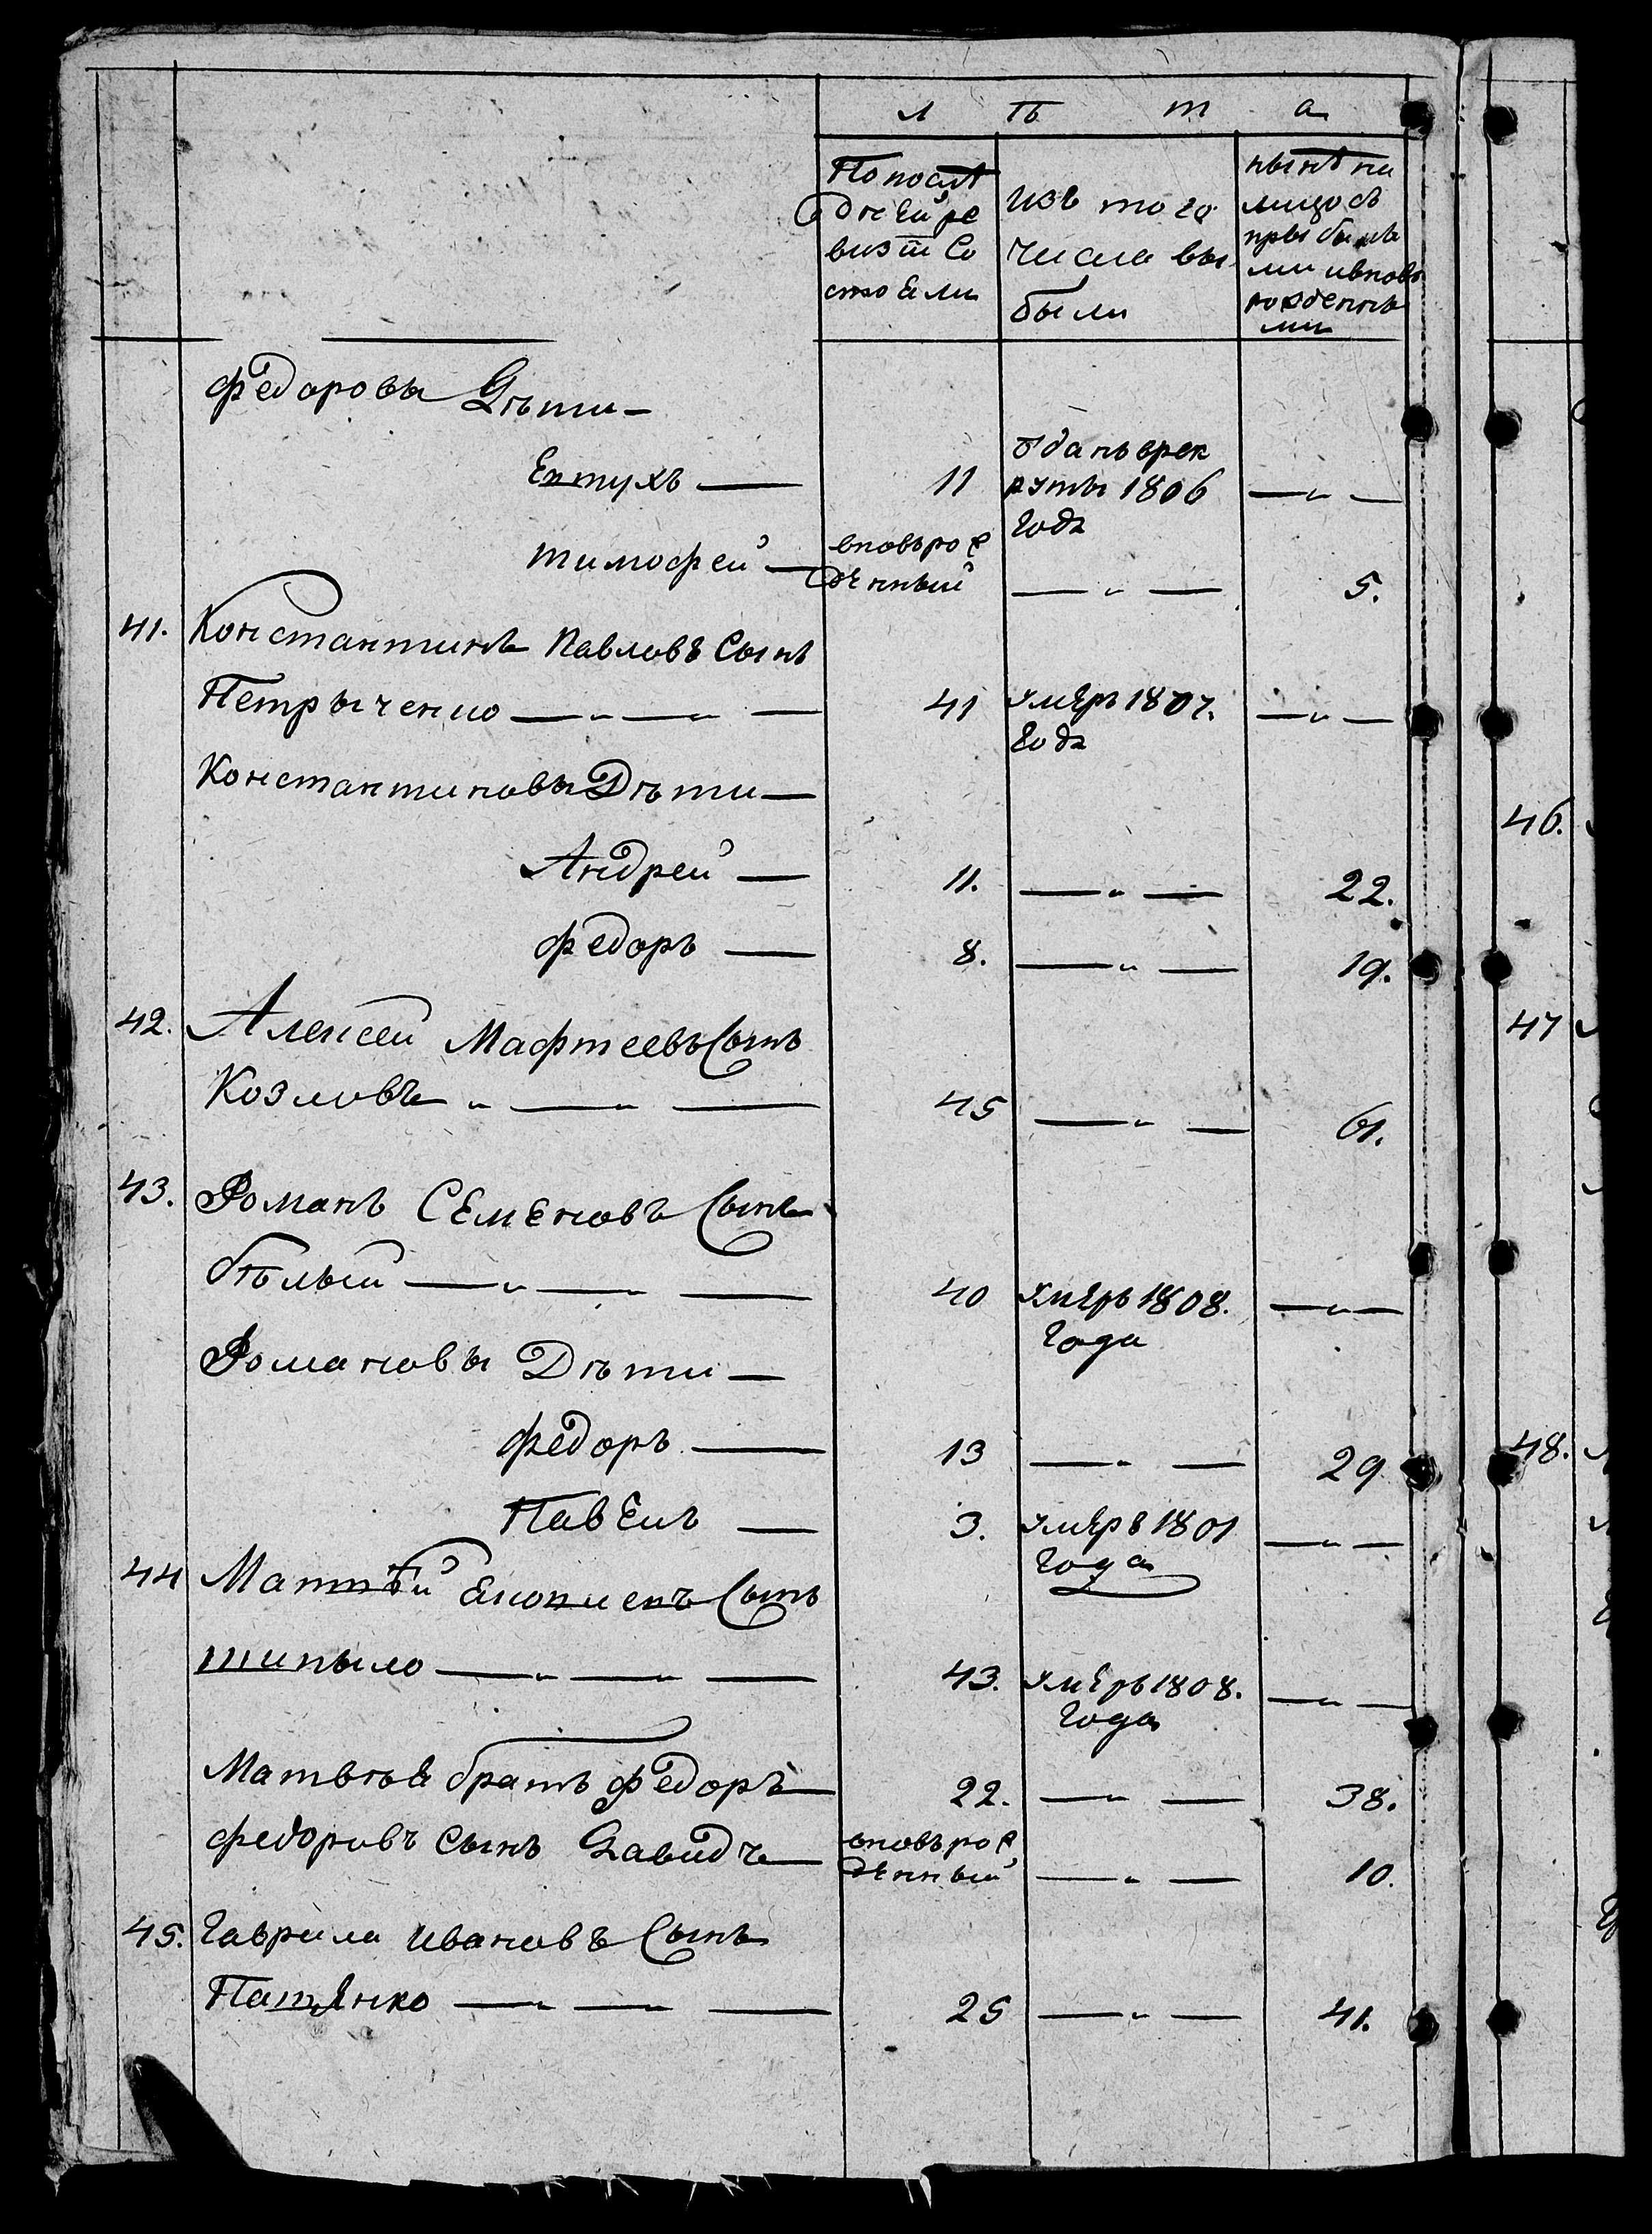 л ѣ т а
По послѣ
дней ре
визіи со
стояли
изъ того
числа вы
были
нынѣ на
лицо съ
прибылы
ми и вновь
рожденны
ми
Федоровы Дѣти
Евтухъ 11 отданъ врек
руты 1806
года
Тимофей вновьрож
денный 5.
41. Константинъ Павловъ Сынъ
Петрыченко 41 умеръ 1807.
года
Константиновы Дѣти
Андрей 11. 22.
Федоръ 8. 19.
42. Алексей Мафтеевъ Сынъ
Козловъ 45 61.
43. Романъ Семеновъ Сынъ
бѣлый 40 умеръ 1808.
Года
Романовы Дѣти
Федоръ 13 29
Павелъ 3. умеръ 1801
Года
44 Матвѣй Сынъ
43. умеръ 1808.
Года
Матвѣя братъ Федоръ 22. 38.
Федоровъ Сынъ Давидъ вновьрож
денный 10.
45. Гаврила Ивановъ Сынъ
25 41.
46.
47
48.